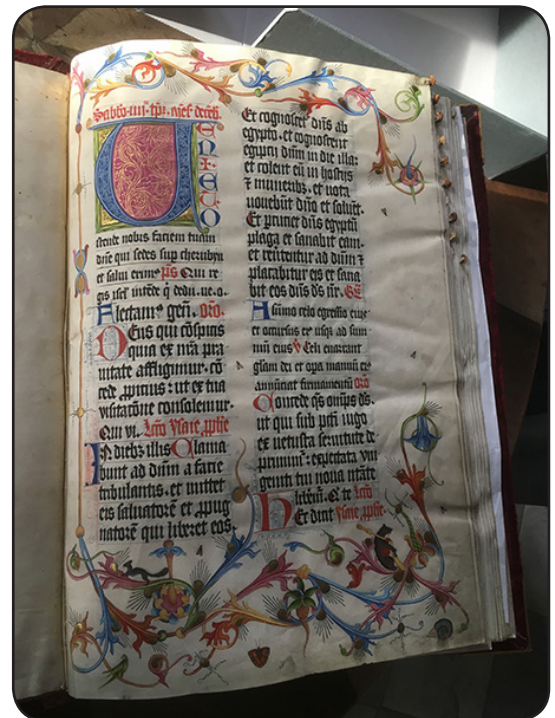 VENI ET O
stende nobis faciem tuam
dñe qui sedes sup cherubyn
et salui erimꝰ p̄s Qui re
gis isrl intēde q̄ dedu. ue. o.
gen. oro.
Deus qui cōspicis
quia ex nr̄a pra
uitate affligimur. cō
cede ꝓpitius: ut ex tua
visitatōne consolemur.
Qui vi. Lc̄o Ysaie ꝓph̄e
In diebꝫ illis Clama
bunt ad dnm̄ a facie
tribulantis. et mittet
eis saluatorē et ꝓpug
natorē qui liberet eos.
Et cognoscet dn̄s ab
egypto. et cognoscent
egiptij dn̄m in die illa:
et colent eū in hostijs
⁊ muneribꝫ. et uota
uouebūt dn̄o et soluēt.
Et ꝑcuciet dn̄s egyptū
plaga et sanabit eam.
et reūtentur ad dn̄m ⁊
placabitur eis et sana
bit eos dn̄s ds̄ nr̄. GR̄
A sūmo celo egressio eiꝰ
et occursus eiꝰ usqꝫ ad sum
mū eius ℣ Celi enarrant
gl̄am dei et opa manuū eiꝰ
annūciat firmamentū oro
Concede qs̄ om̄ps ds̄.
ut qui sub pctī iugo
ex uetusta seruitute de
primimꝰ: expectata vni
geniti tui noua nr̄atē
liberēm̄. Q̄ te Lc̄o
Ysaie ꝓph̄e.